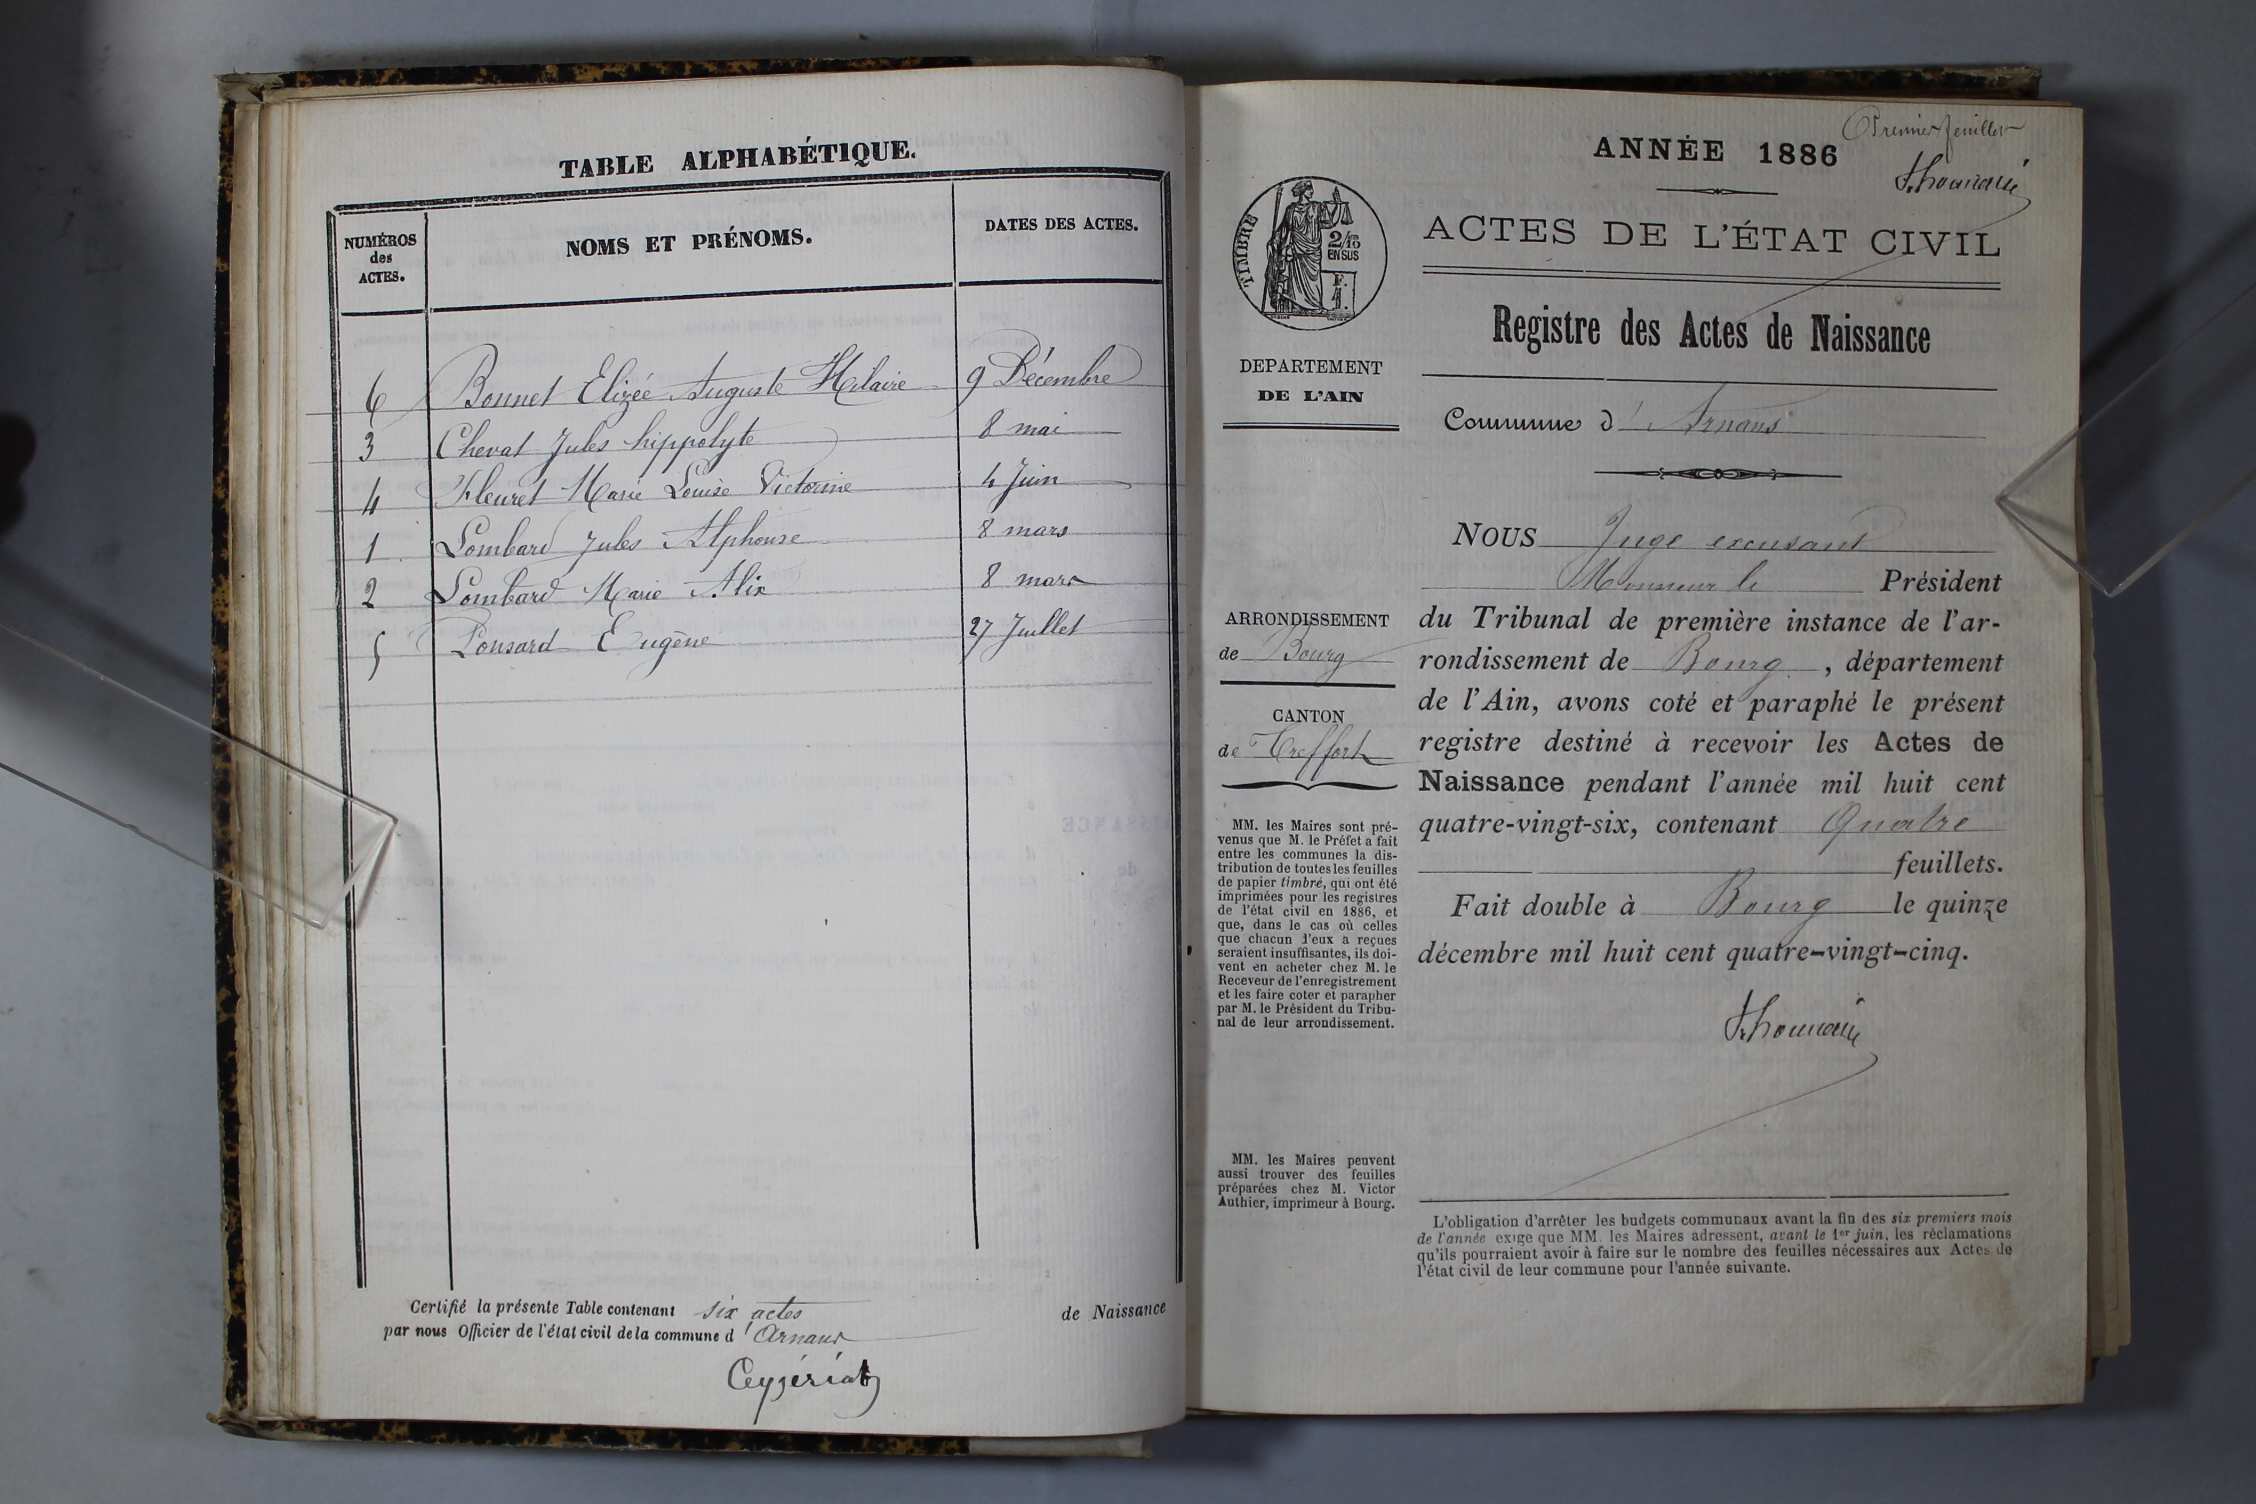 TABLE ALPHABÉTIQUE.
NUMÉROS
des
ACTES.
NOMS ET PRÉNOMS.
DATES DES ACTES.
6 Bonnet Elizée Auguste Hilaire 9 Décembre
3 Chevat Jules hippolyte 8 mai
4 Fleuret Marie Louise Victorine 4 Juin
1 Lombard Jules Alphonse 8 mars
2 Lombard Marie Alix 8 mars
5 Ponsard Eugène 27 Juillet
Certifié la présente Table contenant six actes de Naissance
par nous Officier de l'état civil de la commune d'Arnans
Ceyzériat
Premier feuillet
ANNÉE 1886
ACTES DE L'ÉTAT CIVIL
Registre des Actes de Naissance
Commune d'Arnans
TIMBRE
2/10
EN SUS
F.
1.
DEPARTEMENT
DE L'AIN
ARRONDISSEMENT
de Bourg
CANTON
de Treffort
MM. les Maires sont pré-
venus que M. le Préfet a fait
entre les communes la dis-
tribution de toutes les feuilles
de papier timbré, qui ont été
imprimées pour les registres
de l'état civil en 1886, et
que, dans le cas où celles
que chacun d'eux a reçues
seraient insuffisantes, ils doi-
vent en acheter chez M. le
Receveur de l'enregistrement
et les faire coter et parapher
par M. le Président du Tribu-
nal de leur arrondissement.
MM. les Maires peuvent
aussi trouver des feuilles
préparées chez M. Victor
Authier, imprimeur à Bourg.
NOUS Juge excusant
Monsieur le Président
du Tribunal de première instance de l'ar-
rondissement de Bourg, département
de l'Ain, avons coté et paraphé le présent
registre destiné à recevoir les Actes de
Naissance pendant l'année mil huit cent
quatre-vingt-six, contenant Quatre
feuillets.
Fait double à Bourg le quinze
décembre mil huit cent quatre-vingt-cinq.
L'obligation d'arrêter les budgets communaux avant la fin des six premiers mois
de l'année exige que MM. les Maires adressent, avant le 1er juin, les réclamations
qu'ils pourraient avoir à faire sur le nombre des feuilles nécessaires aux Actes de
l'état civil de leur commune pour l'année suivante.